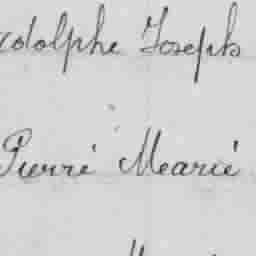 Adolphe Joseph
Pierre Marie